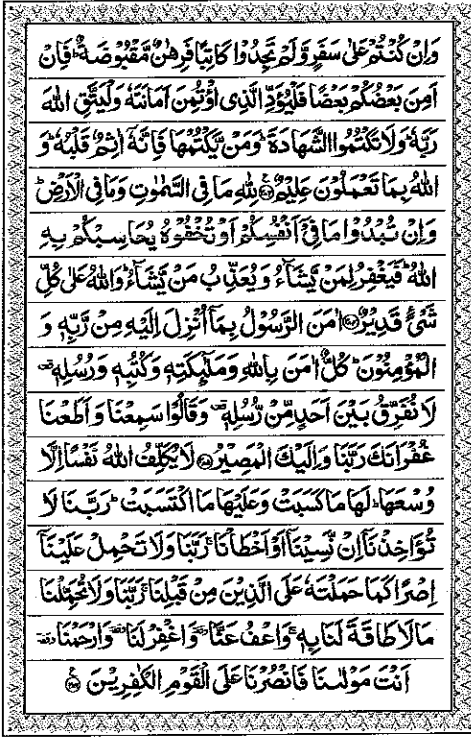 وَاِنْ كُنْتُمْ عَلٰى سَفَرٍ وَّلَمْ تَجِدُوْا كَاتِبًا فَرِهٰنٌ مَّقْبُوْضَةٌ ؕ فَاِنْ
اَمِنَ بَعْضُكُمْ بَعْضًا فَلْيُؤَدِّ الَّذِى اؤْتُمِنَ اَمَانَتَهٗ وَلْيَتَّقِ اللّٰهَ
رَبَّهٗ ؕ وَلَا تَكْتُمُوا الشَّهَادَةَ ؕ وَمَنْ يَّكْتُمْهَا فَاِنَّهٗۤ اٰثِمٌ قَلْبُهٗ ؕ وَ
اللّٰهُ بِمَا تَعْمَلُوْنَ عَلِيْمٌ ﴿۲۸۳﴾ لِلّٰهِ مَا فِى السَّمٰوٰتِ وَمَا فِى الْاَرْضِ ؕ
وَاِنْ تُبْدُوْا مَا فِىْۤ اَنْفُسِكُمْ اَوْ تُخْفُوْهُ يُحَاسِبْكُمْ بِهِ
اللّٰهُ ؕ فَيَغْفِرُ لِمَنْ يَّشَآءُ وَيُعَذِّبُ مَنْ يَّشَآءُ ؕ وَاللّٰهُ عَلٰى كُلِّ
شَىْءٍ قَدِيْرٌ ﴿۲۸۴﴾ اٰمَنَ الرَّسُوْلُ بِمَاۤ اُنْزِلَ اِلَيْهِ مِنْ رَّبِّهٖ وَ
الْمُؤْمِنُوْنَ ؕ كُلٌّ اٰمَنَ بِاللّٰهِ وَمَلٰٓئِكَتِهٖ وَكُتُبِهٖ وَرُسُلِهٖ
لَا نُفَرِّقُ بَيْنَ اَحَدٍ مِّنْ رُّسُلِهٖ وَقَالُوْا سَمِعْنَا وَاَطَعْنَا
غُفْرَانَكَ رَبَّنَا وَاِلَيْكَ الْمَصِيْرُ ﴿۲۸۵﴾ لَا يُكَلِّفُ اللّٰهُ نَفْسًا اِلَّا
وُسْعَهَا ؕ لَهَا مَا كَسَبَتْ وَعَلَيْهَا مَا اكْتَسَبَتْ ؕ رَبَّنَا لَا
تُؤَاخِذْنَاۤ اِنْ نَّسِيْنَاۤ اَوْ اَخْطَاْنَا ۚ رَبَّنَا وَلَا تَحْمِلْ عَلَيْنَاۤ
اِصْرًا كَمَا حَمَلْتَهٗ عَلَى الَّذِيْنَ مِنْ قَبْلِنَا ۚ رَبَّنَا وَلَا تُحَمِّلْنَا
مَا لَا طَاقَةَ لَنَا بِهٖ ۚ وَاعْفُ عَنَّا وَاغْفِرْ لَنَا وَارْحَمْنَا
اَنْتَ مَوْلٰىنَا فَانْصُرْنَا عَلَى الْقَوْمِ الْكٰفِرِيْنَ ﴿۲۸۶﴾